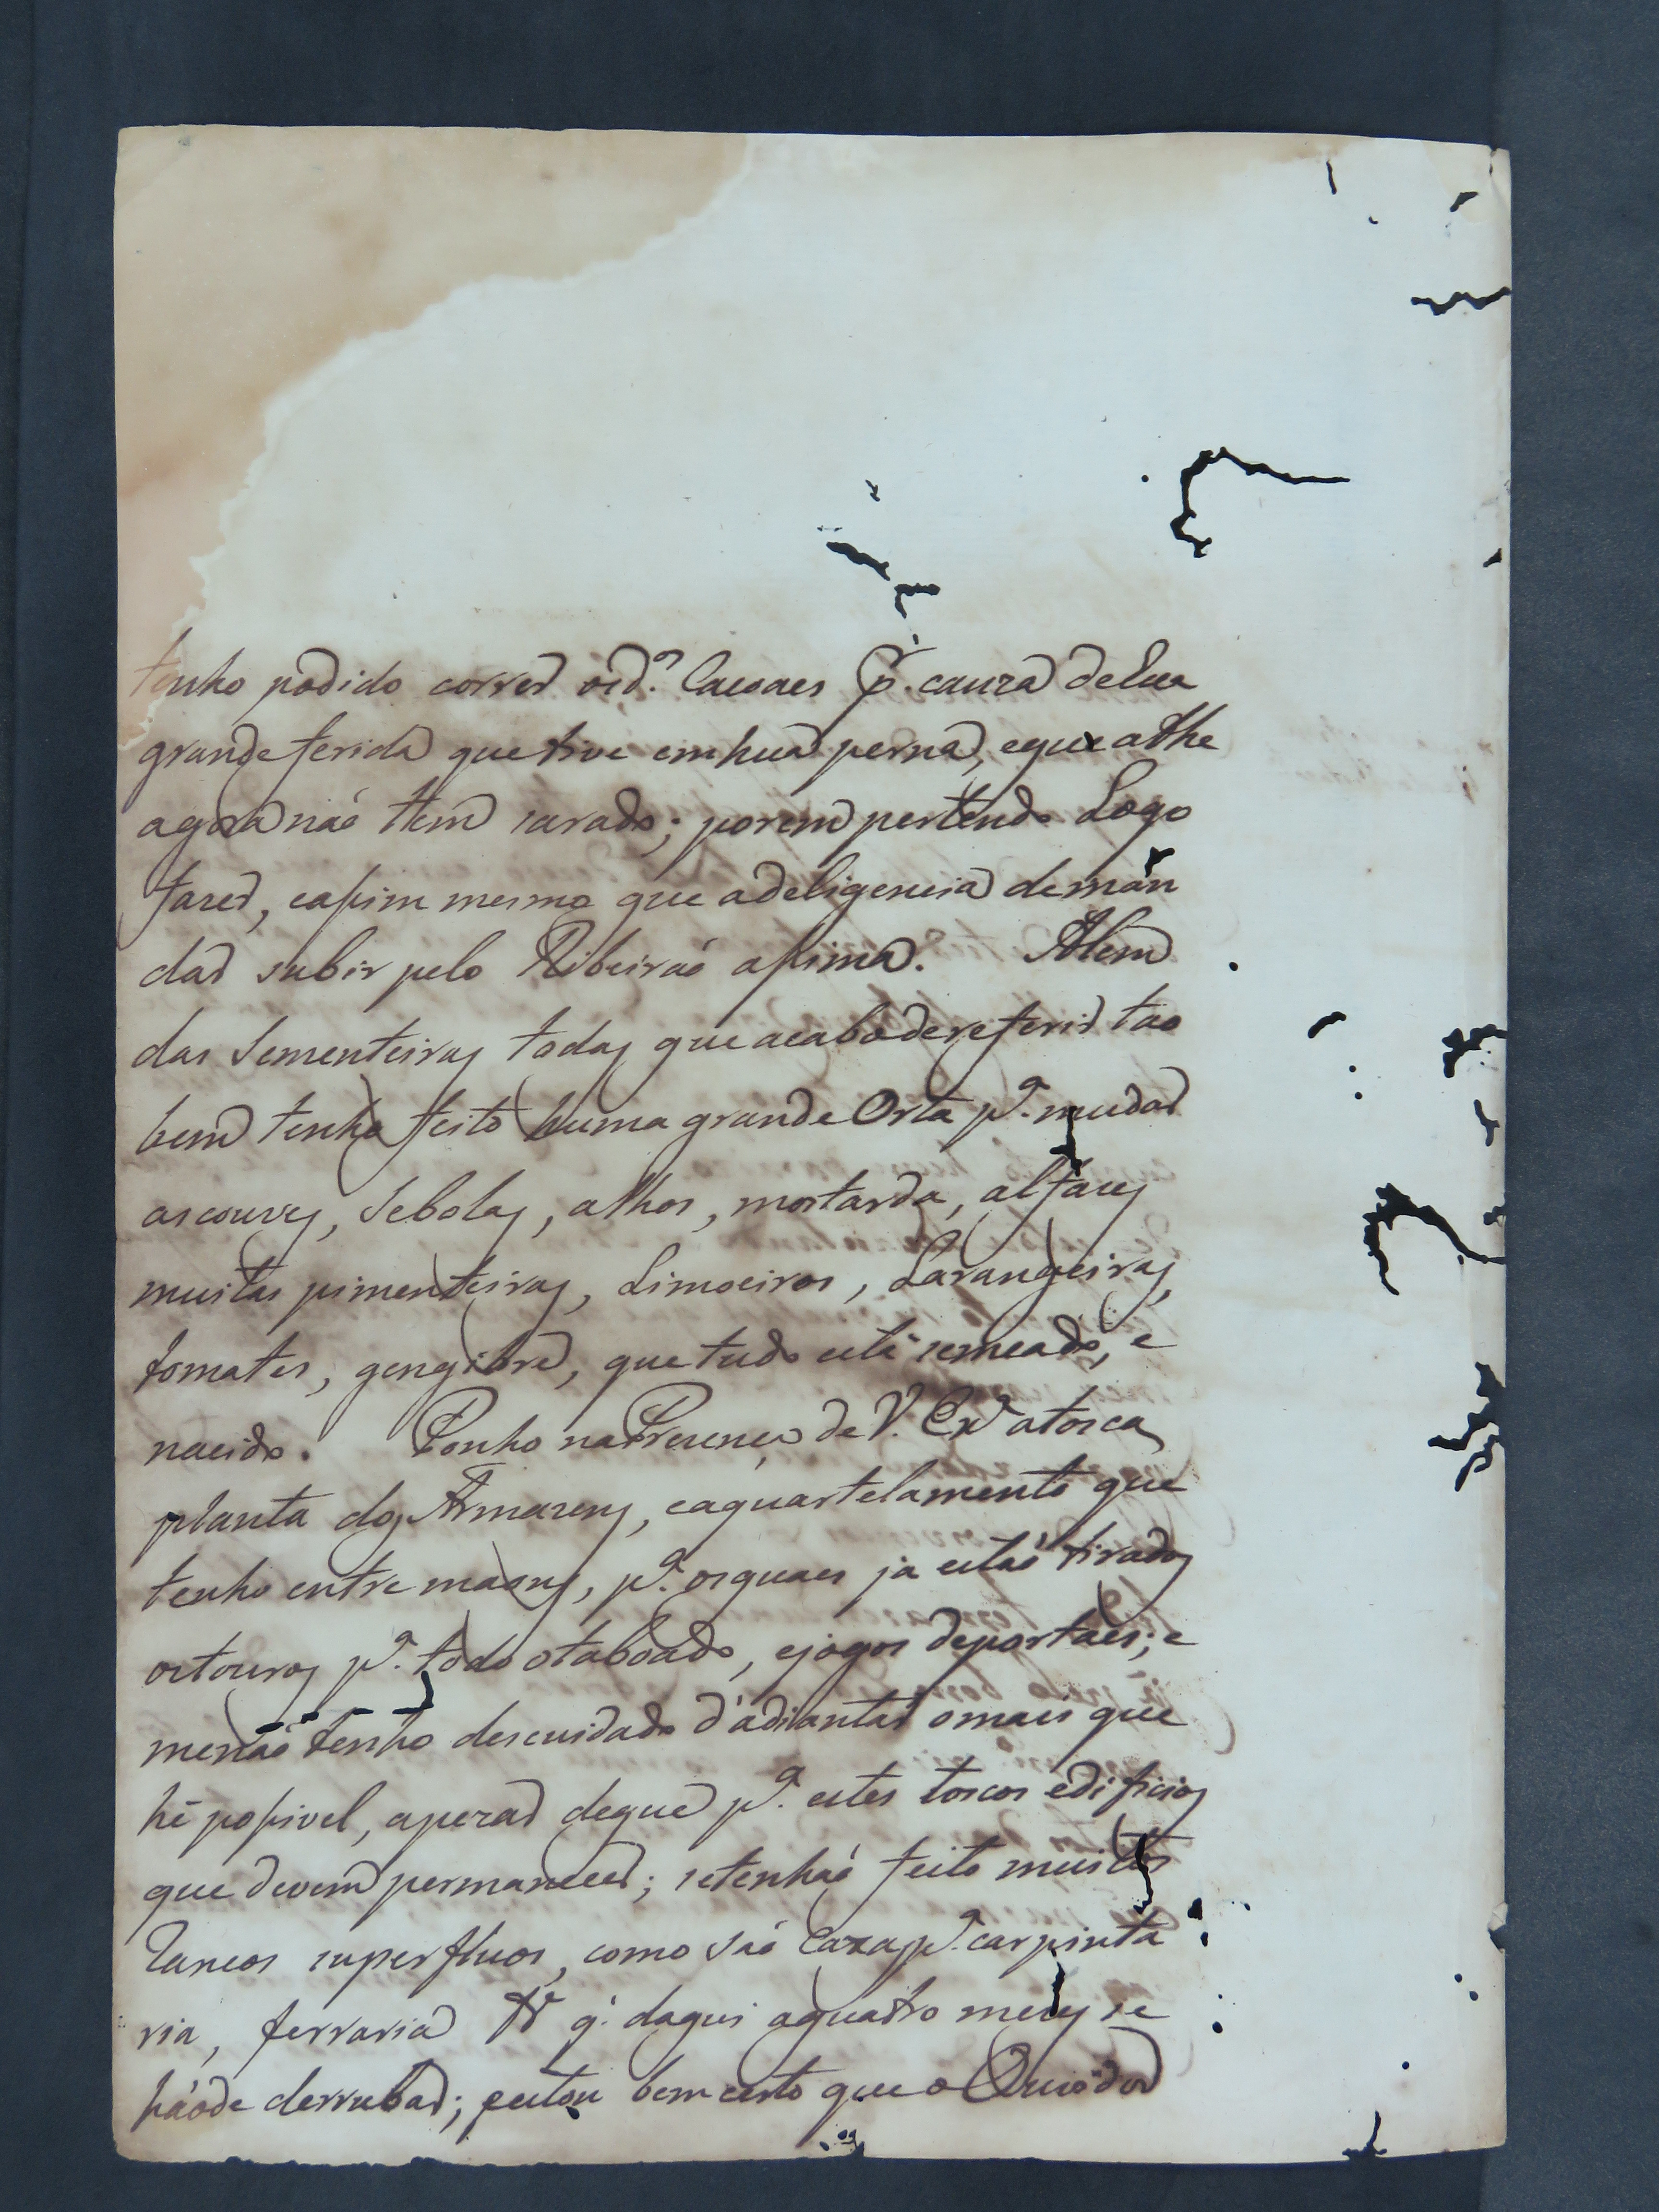 tenho podido correr os d.os Cacoaes p.r cauza de hua
grande ferida que tive em hua perna, e que athe
agora naó ttem sarado; porem pertendo Logo
fazer, e assim mesmo que a deligencia de man
dar subir pelo Ribeiraó assima. Alem
das Sementeiras todas que acabo de referir tao
bem tenho feito huma grande Orta p.a mudar
as couves, Sebolas, alhos, mostarda, alfaces
muitas pimenteiras, Limoeiros, Larangeiras,
tomates, gengibre, que tudo está semeado, e
nacido. Ponho na Prezença de V. Ex.a a tosca
planta dos Armazens, e aquartelamento que
tenho entre maons, p.a os quaes ja estaó tirados
os touros p.a todo o taboado, e jogos de portaes; e
me naó tenho descuidado d'adiantar o mais que
hé possivel, apezar de que p.a estes toscos edificios
que devem permanecer; se tenhaó feito muitos
Rancos superfluos, como saó Cazas p.a carpinta
ria, ferraria &.a q.' daqui a quatro mezes se
haó de derrubar; e estou bem certo que o Ouvidor